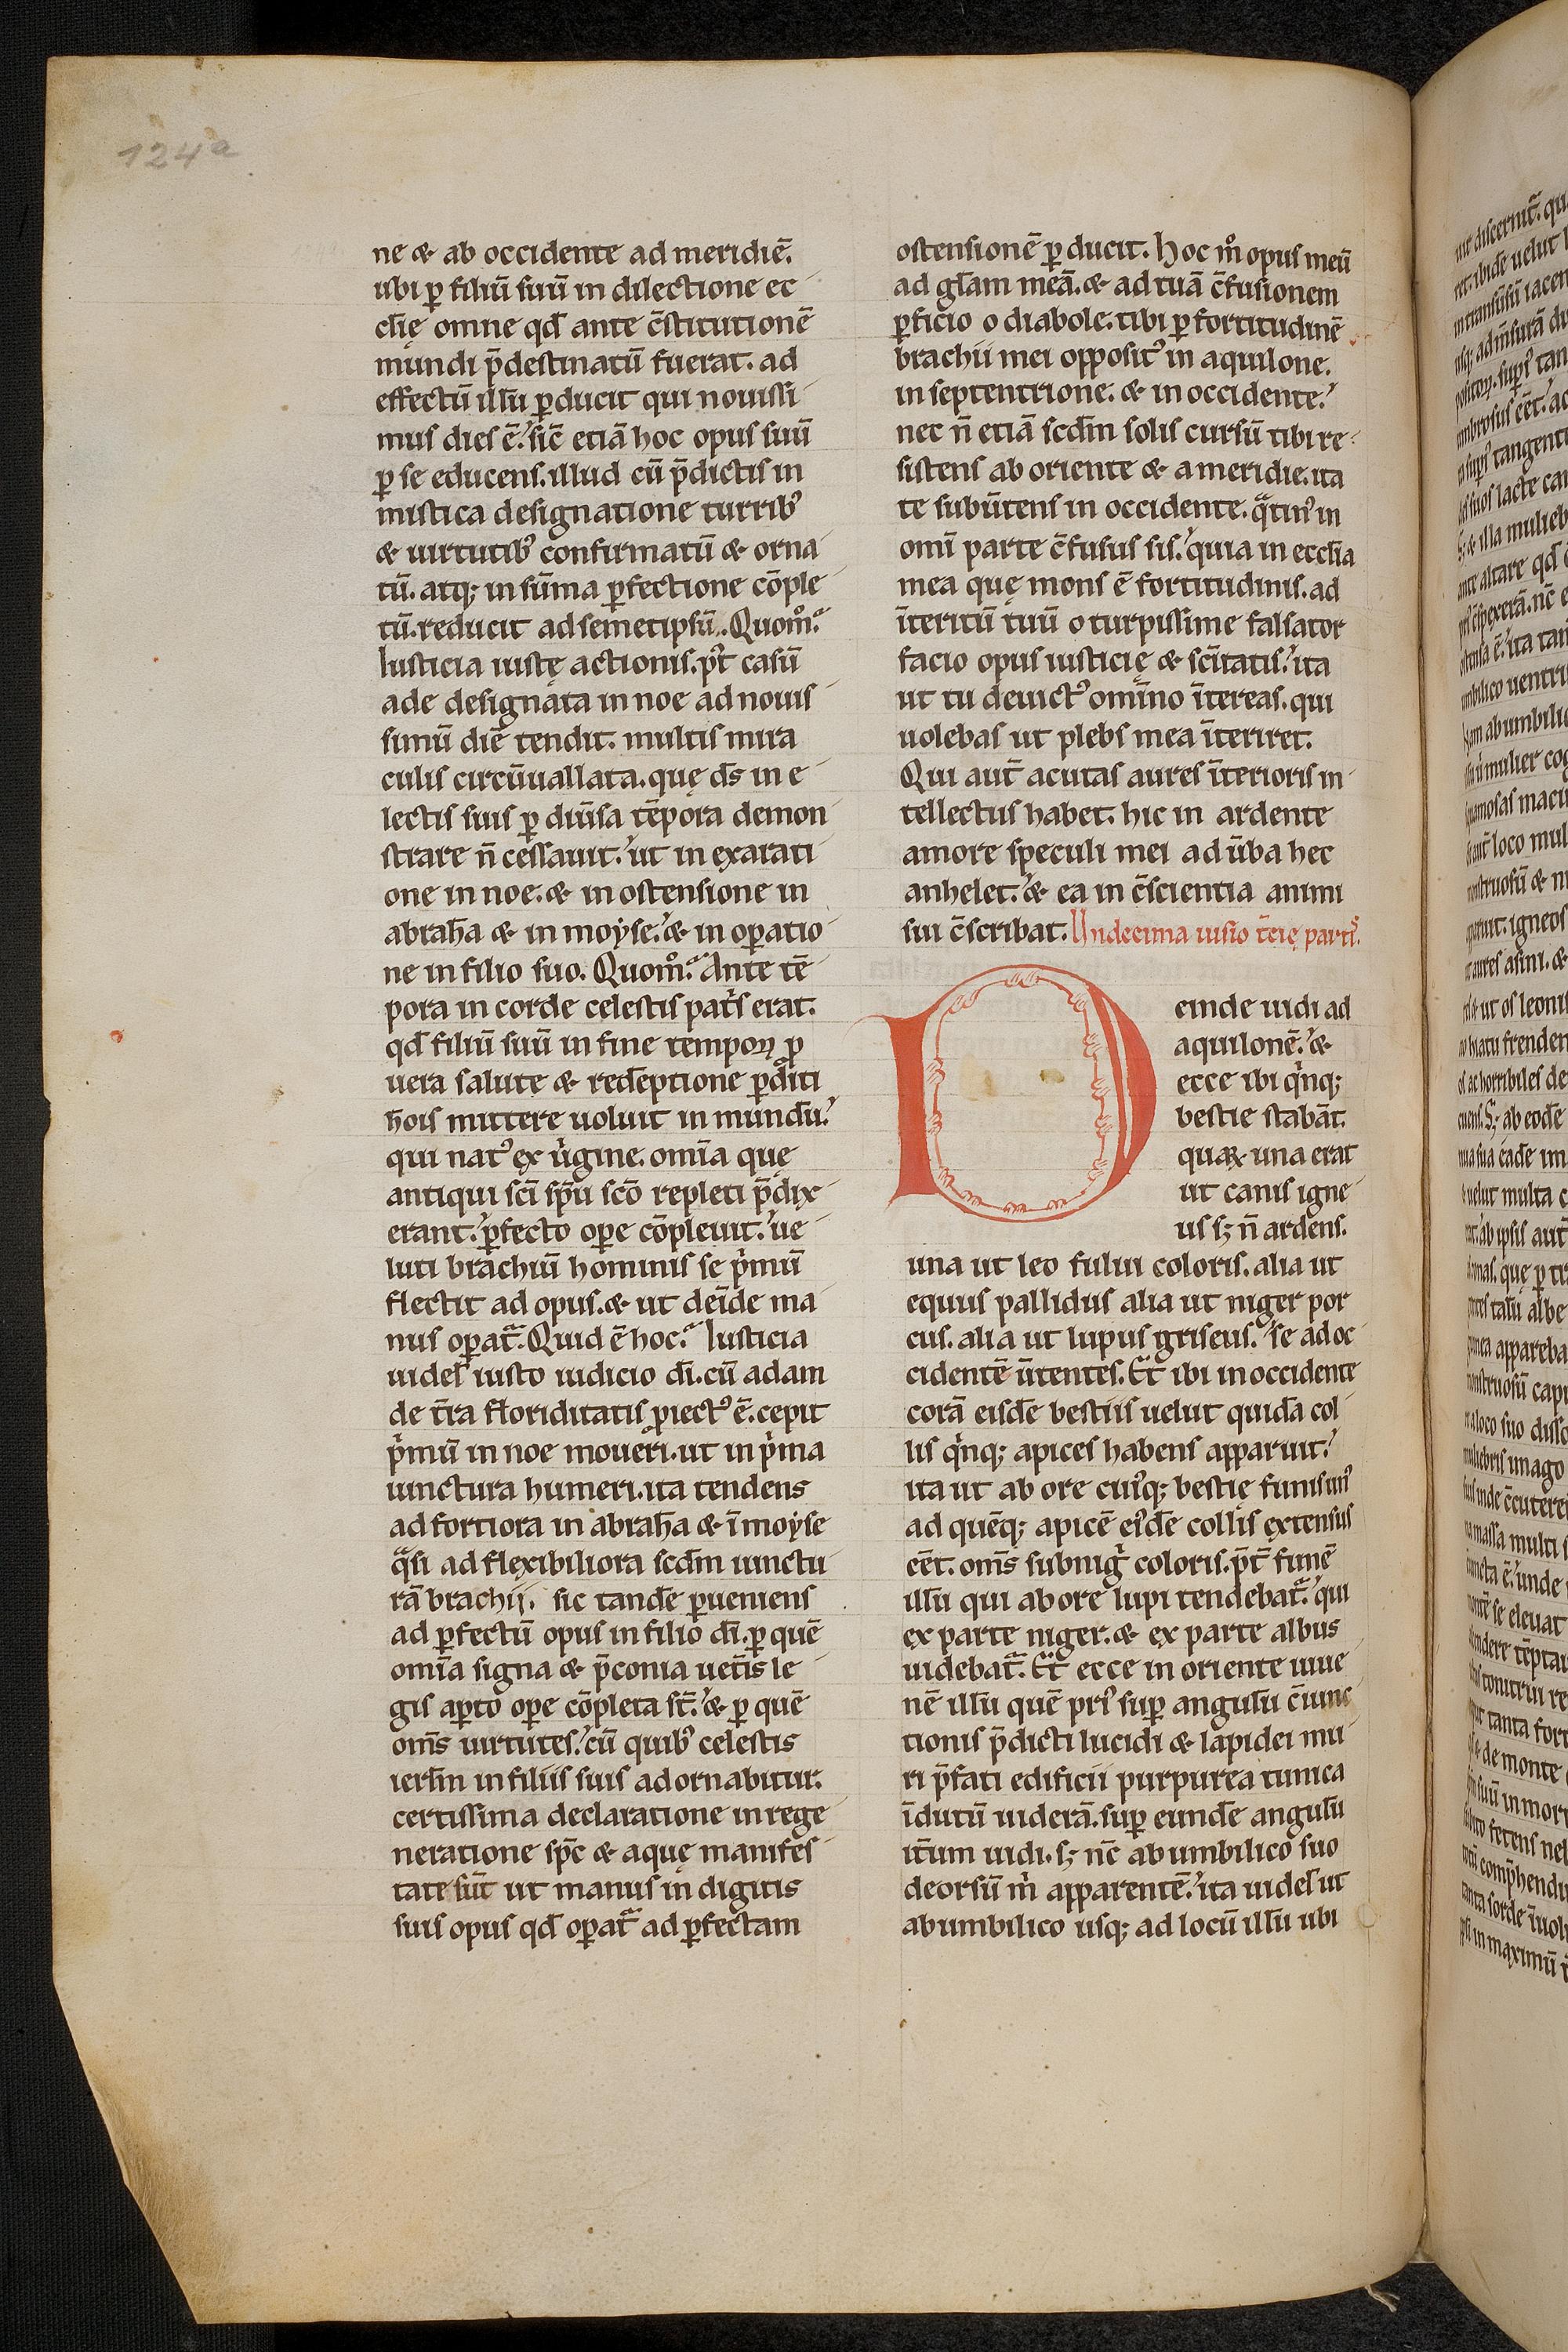 124a
ne & ab occidente ad meridiē.
ubi ꝑ filiū suū in dilectione ec
cl̄ię omne qd̄ ante c̄stitutionē
mundi p̄destinatū fuerat. ad
effectū illū ꝑducit qui nouissi
mus dies ē. sic̄ etiā hoc opus suū
ꝑ se educens. illud cū p̄dictis in
mistica designatione turribꝰ
& uirtutibꝰ confirmatū & orna
tū. atq; in sūma ꝑfectione cōple
tū. reducit ad semetipsū. Quom̊.
Iusticia iustę actionis. pꝰt casū
ade designata in noe ad nouis
simū diē tendit. multis mira
culis circūuallata. quę ds̄ in e
lectis suis ꝑ diūsa tēpora demon
strare n̄ cessauit. ut in exarati
one in noe. & in ostensione in
abrah̄a & in moẏse. & in oꝑatio
ne in filio suo. Quom̊. Ante tē
pora in corde celestis patͥs erat.
qd̄ filiū suū in fine tempoꝝ ꝓ
uera salute & redēptione ꝑditi
h̄ois mittere uoluit in mundū.
qui natꝰ ex uͥgine. omīa quę
antiqui sc̄i sp̄u sc̄o repleti p̄dix
erant. ꝑfecto oꝑe cōpleuit. ue
luti brachiū hominis se pͥmū
flectit ad opus. & ut deīde ma
nus oꝑat᷑. Quid ē hoc. Iusticia
uidel̄ iusto iudicio dī. cū adam
de t̄ra floriditatis ꝓiectꝰ ē. cepit
pͥmū in noe moueri. ut in pͥma
iunctura humeri. ita tendens
ad fortiora in abrah̄a & ī moẏse
qͣsi ad flexibiliora scd̄m iunctu
rā brachii. sic tandē ꝑueniens
ad ꝑfectū opus in filio dī. ꝑ quē
omīa signa & p̄conia uet̄is le
gis aꝑto oꝑe cōpleta st̄. & ꝑ quē
om̄s uirtutes. cū quibꝰ celestis
ierl̄m in filiis suis adornabitur.
certissima declaratione in rege
neratione sp̄c & aquę manifes
tate sūt ut manus in digitis
suis opus qd̄ oꝑat᷑ ad ꝑfectam
ostensionē ꝑducit. Hoc m̊ opus meū
ad gl̄am meā. & ad tuā c̄fusionem
ꝑficio o diabole. tibi ꝑ fortitudinē
brachii mei oppositꝰ in aquilone.
in septentrione. & in occidente.
nec n̄ etiā scd̄m solis cursū tibi re
sistens ab oriente & a meridie. ita
te subūtens in occidente. qͣtinꝰ in
omī parte c̄fusus sis. quia in eccl̄ia
mea quę mons ē fortitudinis. ad
īteritū tuū o turpissime falsator
facio opus iusticię & sc̄itatis. ita
ut tu deuictꝰ omīno ītereas. qui
uolebas ut plebs mea īteriret.
Qui aut̄ acutas aures īterioris in
tellectus habet. hic in ardente
amore speculi mei ad ūba hec
anhelet. & ea in c̄scientia animi
sui c̄scribat. Undecima uisio t̄cię partͥs.
Deinde uidi ad
aquilonē. &
ecce ibi qͥnq;
bestie stabāt.
quaꝝ una erat
ut canis igne
us s; n̄ ardens.
una ut leo fului coloris. alia ut
equus pallidus alia ut niger por
cus. alia ut lupus griseus. se ad oc
cidentē ūtentes. Et ibi in occidente
corā eisdē bestiis uelut quidā col
lis qͥnq; apices habens apparuit.
ita ut ab ore cuiꝰq; bestię funis unꝰ
ad quēq; apicē eiꝰdē collis extensus
eēt. om̄s subnigͥ coloris. p̄t funē
illū qui ab ore lupi tendebat᷑. qui
ex parte niger. & ex parte albus
uidebat᷑. Et ecce in oriente iuue
nē illū quē priꝰ suꝑ angulū c̄iunc
tionis p̄dicti lucidi & lapidei mu
ri p̄fati edificii purpurea tunica
īdutū uiderā. suꝑ eundē angulū
it̄um uidi. s; nc̄ ab umbilico suo
deorsū mͥ apparentē. ita uidel̄ ut
ab umbilico usq; ad locū illū ubi